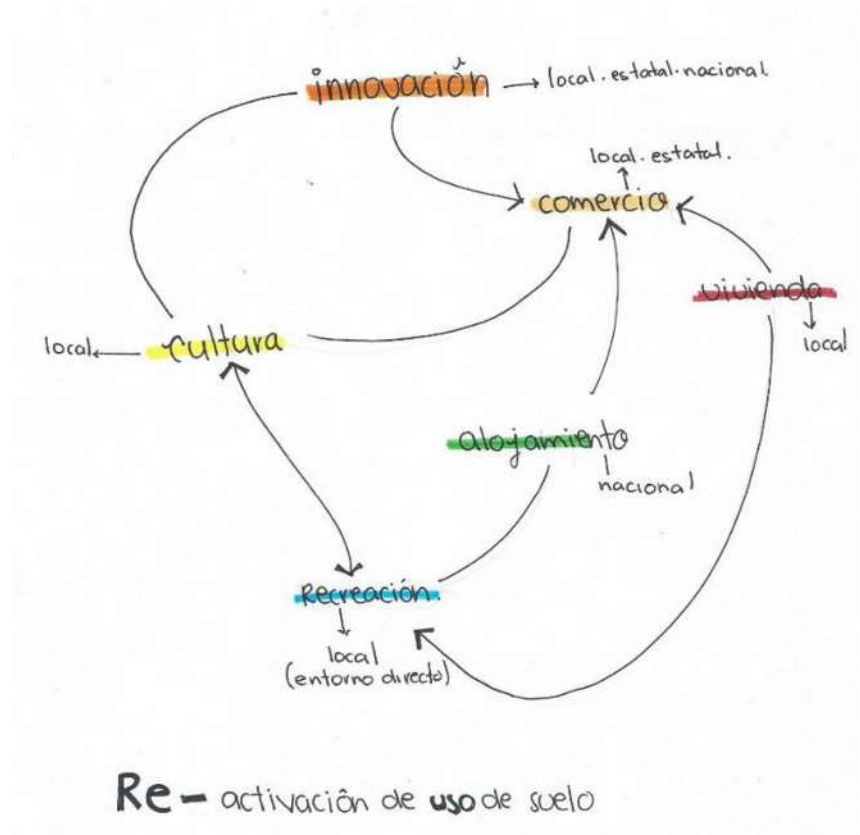 innovación
local.estatal.nacional.
local.estatal.
comercio
vivienda
local
cultura
local
alojamiento
nacional
Recreación.
local
(entorno directo)
Re- activación de uso de suelo